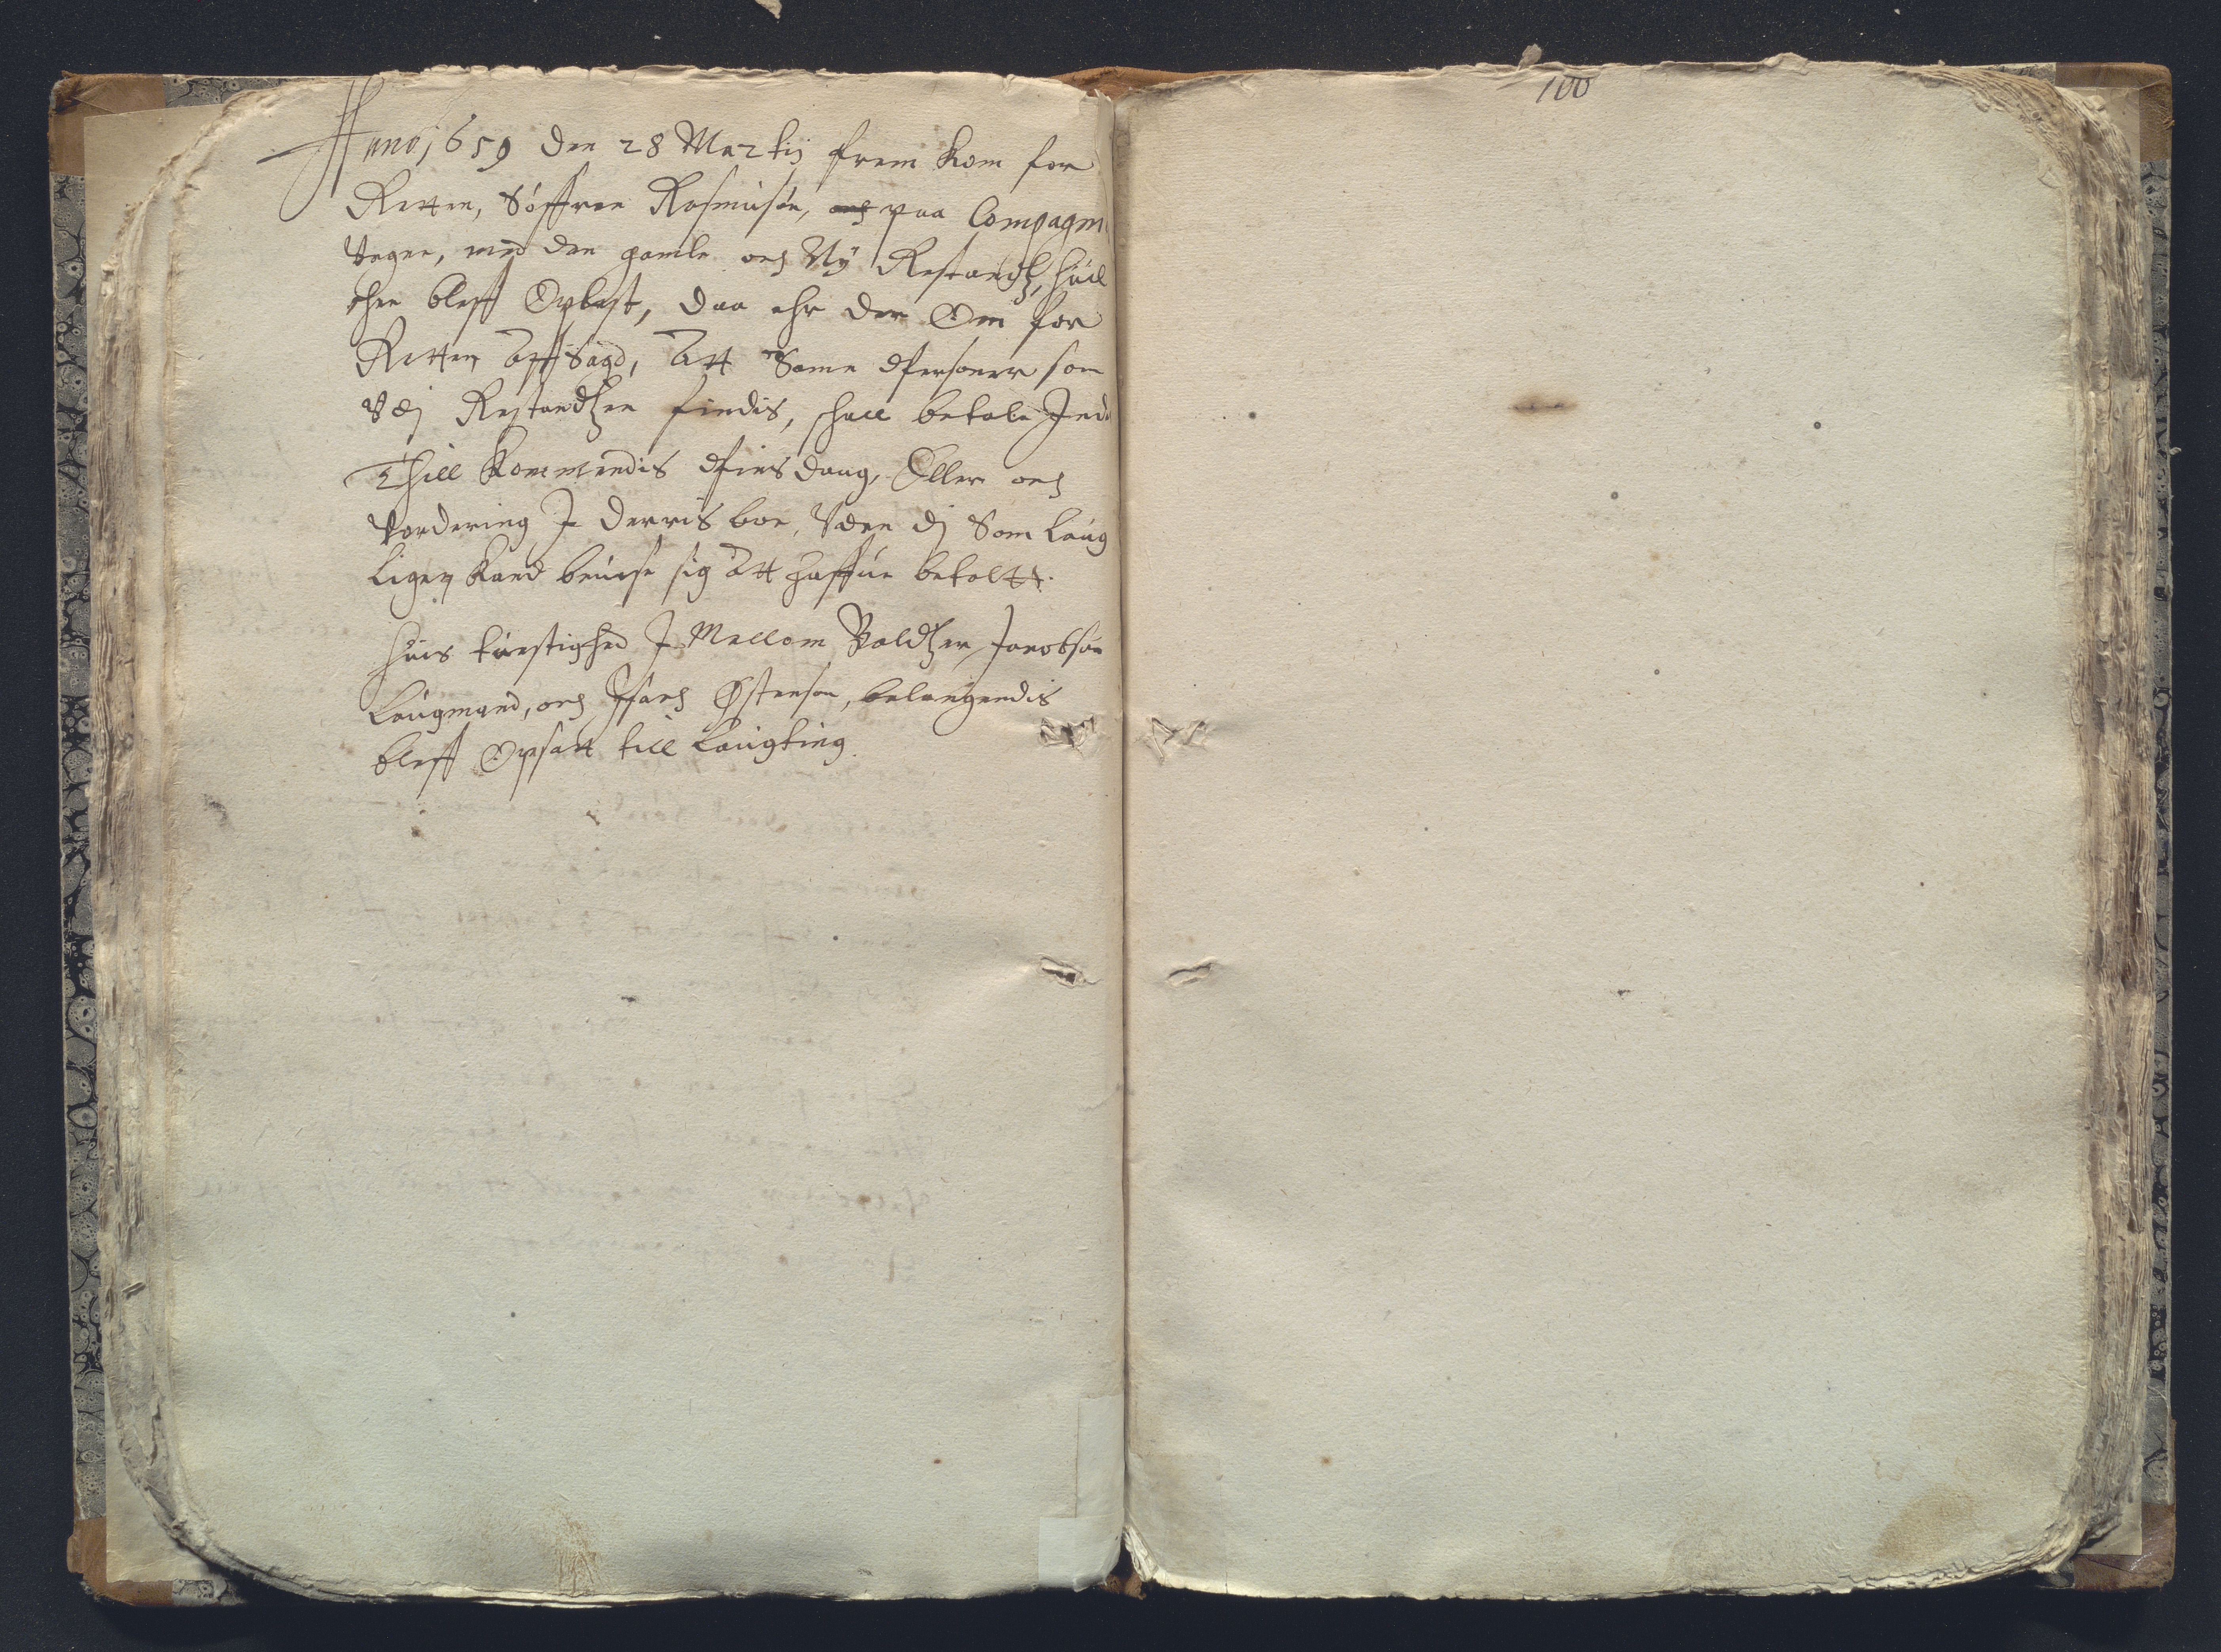 100
Anno 1659 den 28 Martij frem kom for
Retten, Søffren Rasmusøn, och paa Compagni
Vegne, med den gamle och Ny Restandtz, huil
chen bleff Oplæst, daa ehr der Om for
Retten Aff Sagd, Att Samme Personer som
Vdj Restandtzen findis, schall betale Inden
Thill Kommendis Pins daug, Eller och
Vordering I Derris boe, Vden dj Som laug
ligen Kand beuise sig Att haffue betaltt.
Huis tuestighed I Mellom Baldtzer Jacobsøn
Laugmand, och Isach Østensøn, belangendis
bleff Opsatt till Laugting.